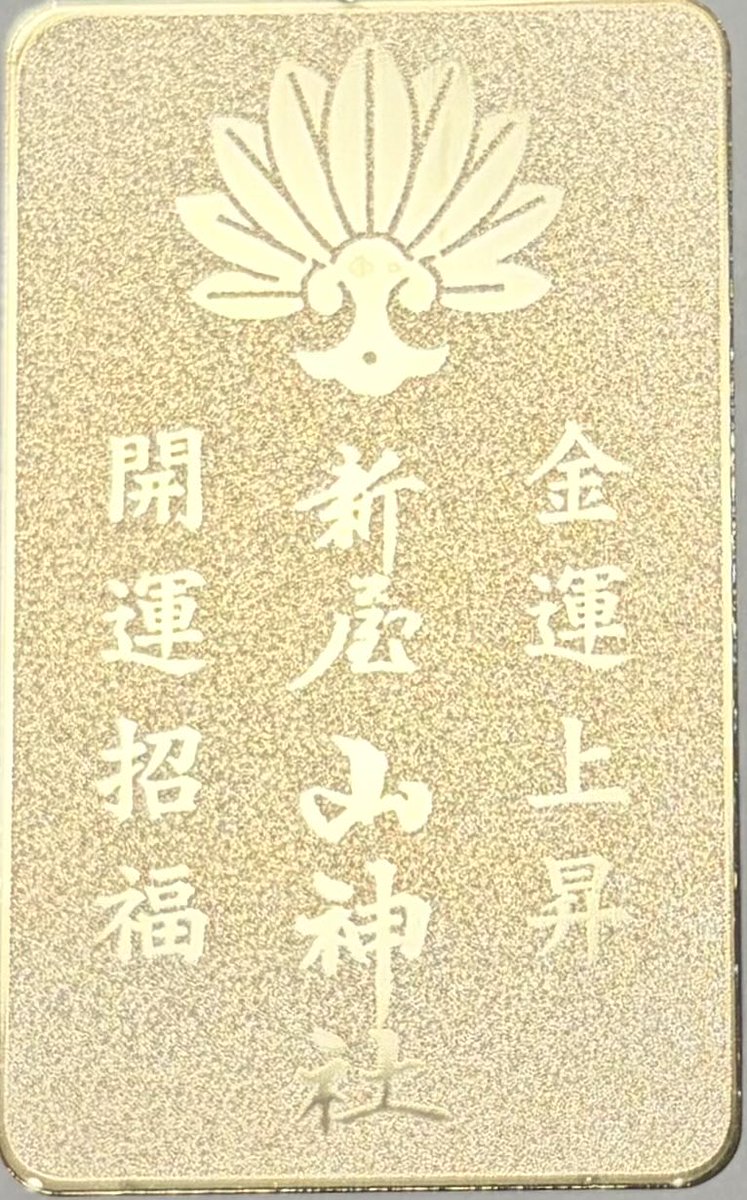 金運上昇
新屋山神社
開運招福